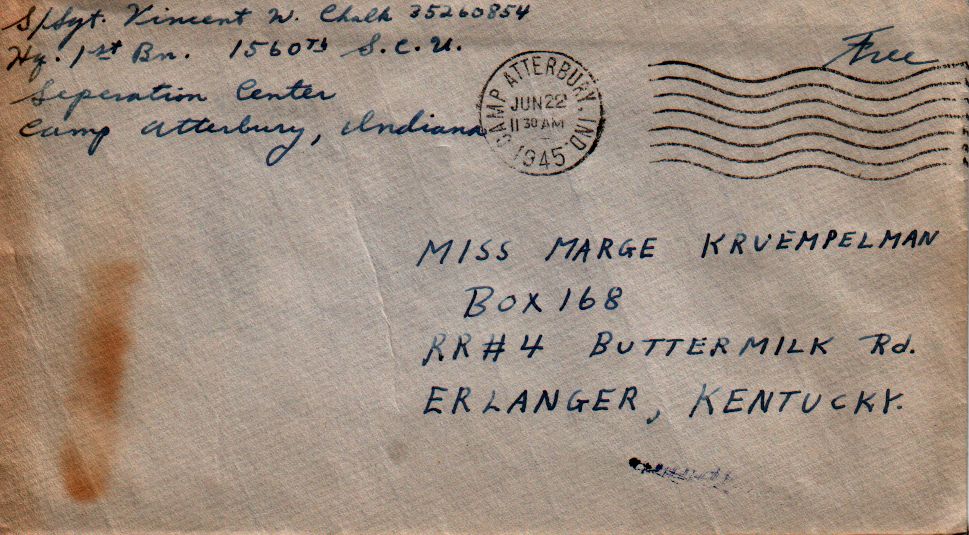 S/Sgt. Vincent W. Chalk 35260854
Hq. 1st Bn. 1560th S.C.U.
Seperation Center
Camp Atterbury, Indiana
Free
CAMP ATTERBURY, IND.
JUN 22
11 30 AM
1945
MISS MARGE KRUEMPELMAN
BOX 168
RR#4 BUTTERMILK Rd.
ERLANGER, KENTUCKY.